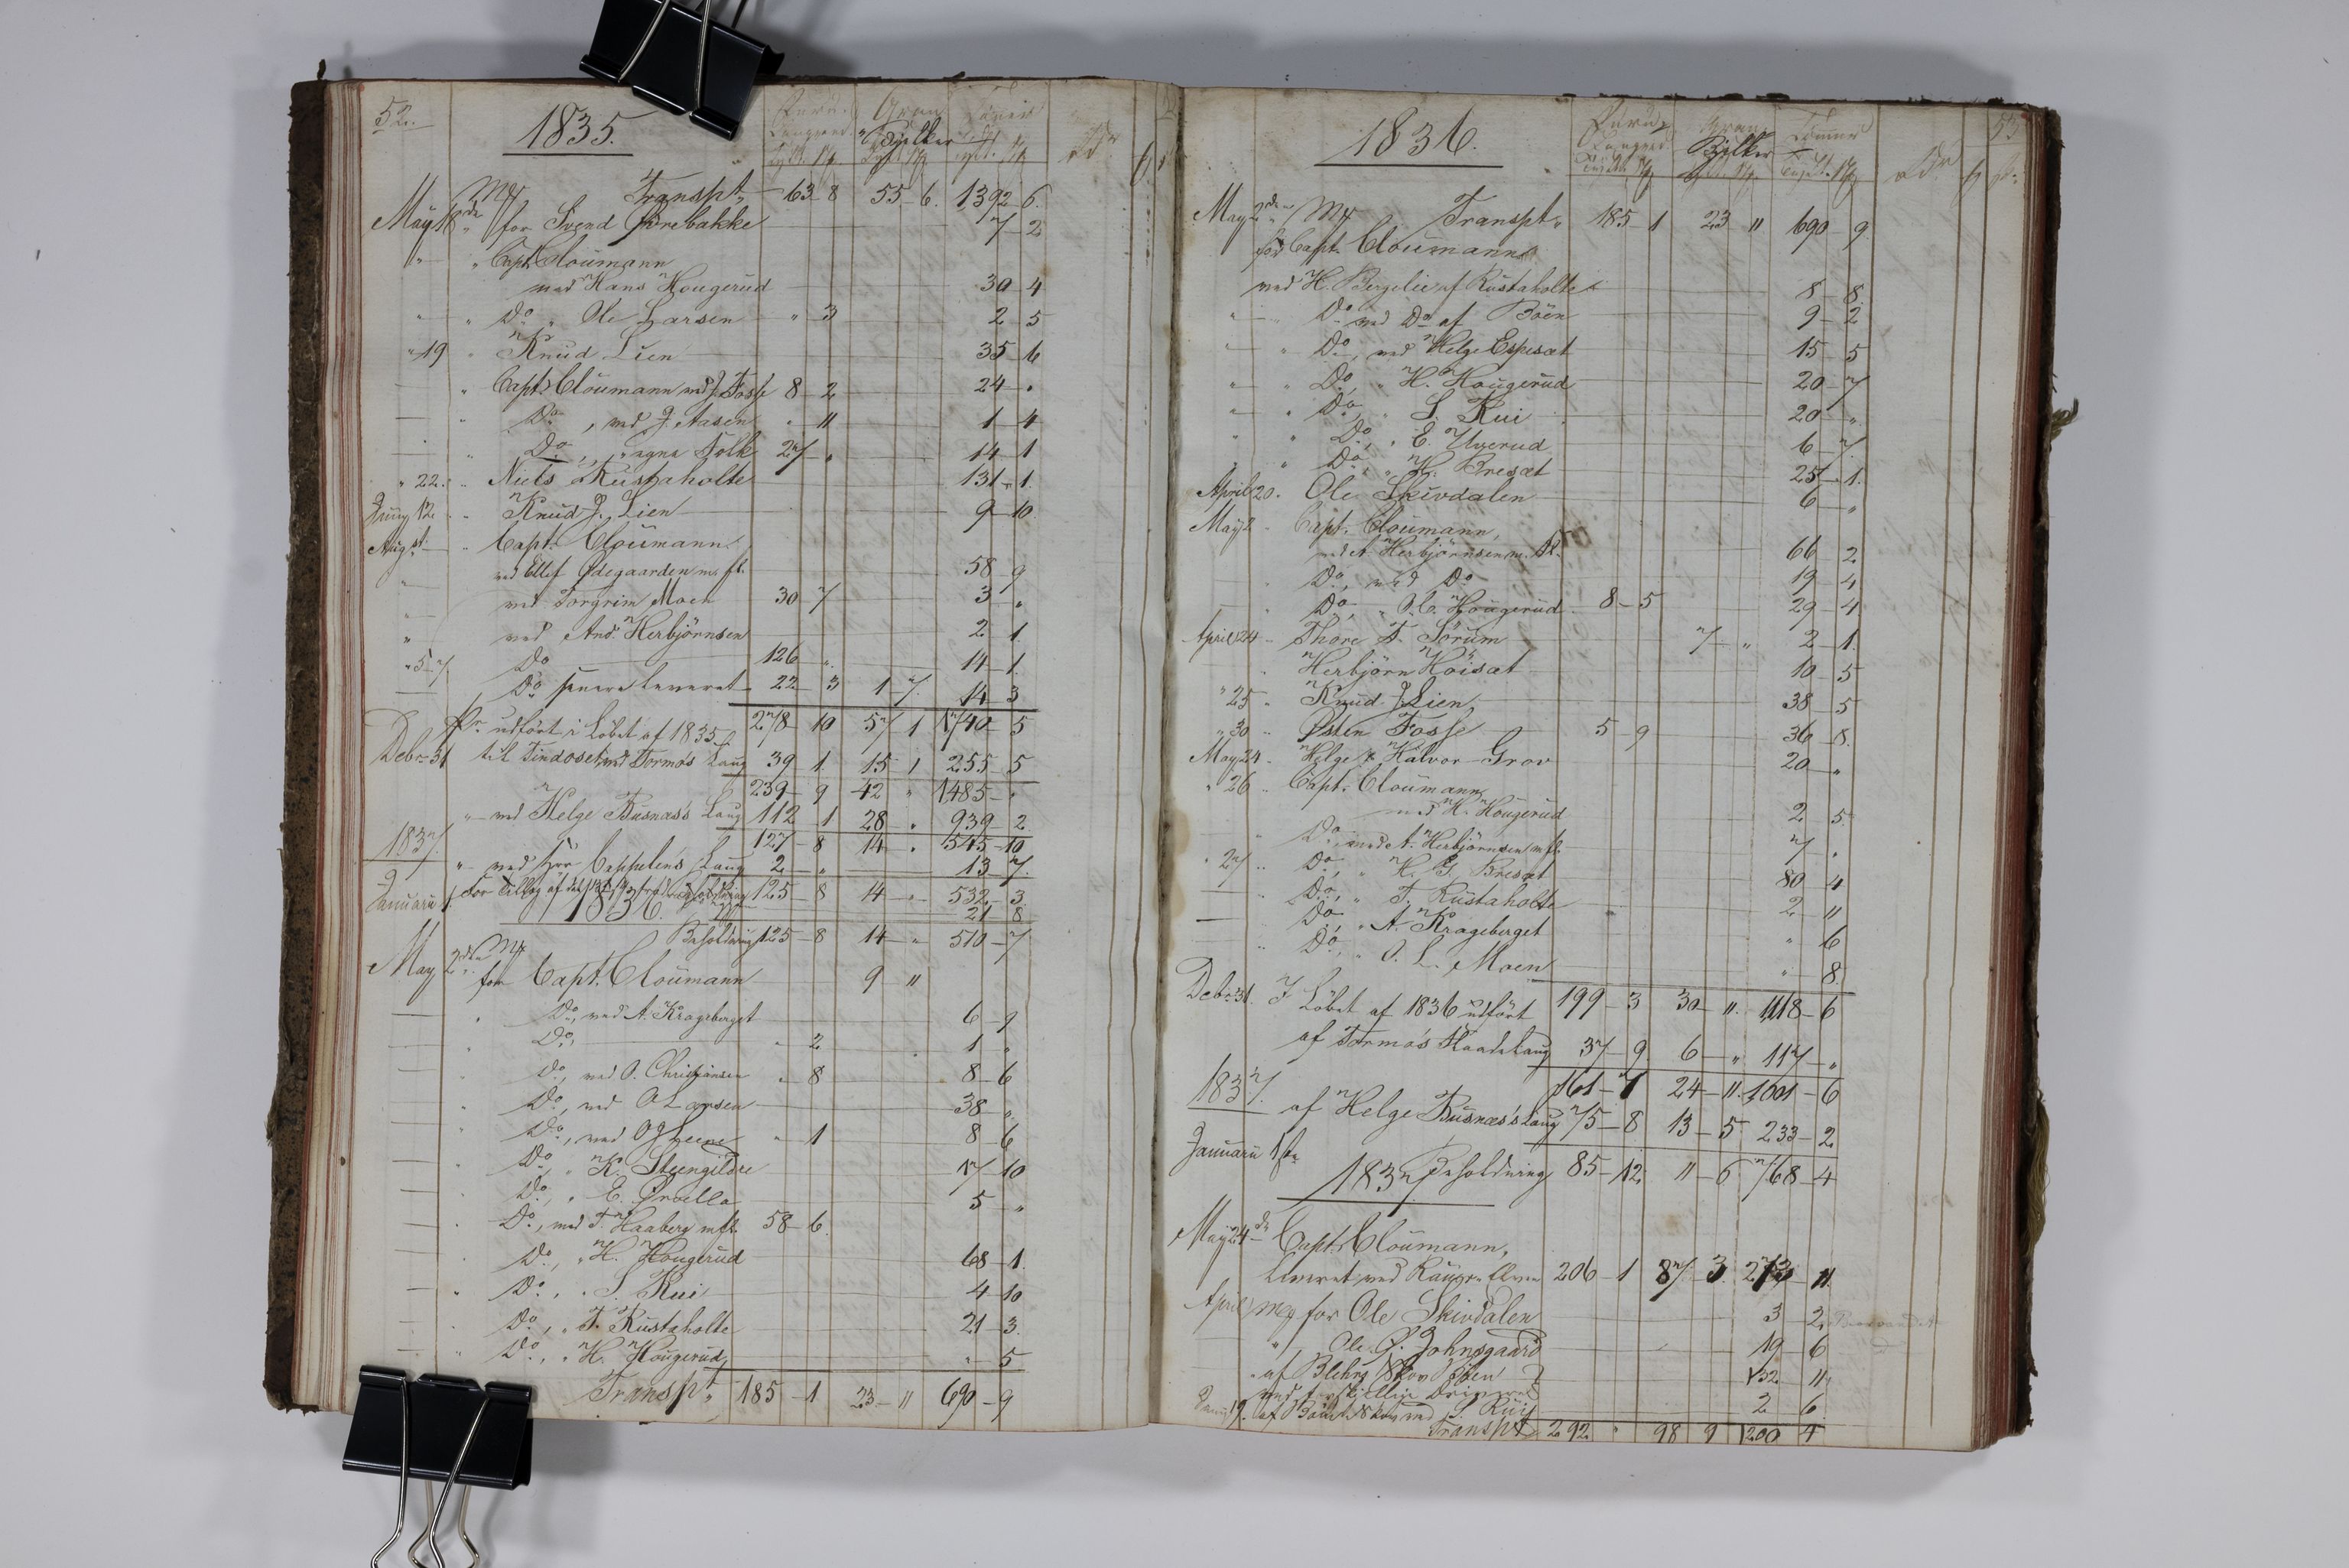 52.
1835.
Gran
Bielker
Tylt. Tylt.
Mk Transpt. 63 - 8 55 - 6. 1392 - 6.
May 18de " for Svend Jörebakke 7 - 2
" " Capt. Cloumann
med Hans Hougerud 30 - 4
" " Do " Ole Larsen " 3 2 5
" 19 " Knud Lien 35 - 6
" Capt. Cloumann med J. Fosse 8 - 2 24 - "
" Do, med J. Aasen " 11 1 4
" Do, " egne Folk 27 - " 14 - 1
" 22. " Niels Rustaholte 131 - 1.
Juny 12. " Knud J. Lien 9 - 10
Augst. " Capt. Cloumann
" med Ellef Ødegaarden m. fl. 58 - 9
" med Torgrim Moen 30 - 7 3 - "
" med And. Herbjörnsen 2 1.
" 5 - 7 Do 126 - " 14 - 1.
Do senere leveret 22 - 3 1 - 7. 14 - 3
er udfört i Löbet af 1835 278 - 10 57 1 1740 - 5
Debr. 31 til Tindoset med Tormos Laug 39 - 1 15 1 255 - 5
239 - 9 42 " 1485 - "
" med Helge Busnæs's Laug 112 - 1 28 " 939 - 2
1837. 127 - 8 14 " 545 - 10
" med Hör Cappelens Laug 2 - " 13 7.
Januarii 1. 125 - 8 14 - " 532 - 3
1836. 21 - 8
Beholdning 125 - 8 14 - " 510 - 7
May 2den Mk
for Capt. Cloumann 9 - 11
" Do, med A. Krageberget 6 - 9
" Do, " 2 1 "
" Do, med O. Christiansen " 8 8 - 6
" Do, med O Larsen 38 "
" Do, med O J " 1 8 - 6
" Do, " K. Steengildre 17 - 10
" Do, " E. 5 - "
" Do, med T. Haaberg m fl. 58 - 6.
" Do, " H. Hougerud 68 - 1.
" Do, " S. Rui 4 10
" Do, " T. Rustaholte 21 - 3.
" Do, " H. Hougerud " - 5
Transpt. 185 - 1 23 - 11 690 - 9
53
1836.
Gran
Bielker
May 2den Mk Transpt. 185 - 1 23 11 690 - 9.
for Capt. Cloumann
med H. Bergelie af Rustaholte 8 - 8.
" " Do med Do af Böen 9 - 2
" " Do, med Helge Espeset 15 - 5
" " Do, " H. Hougerud 20 - 7
" " Do, " S. Rui 20 - "
" " Do, " E. Uverud 6 - 7.
" Do, " H. Breset 25 - 1.
April 20. Ole Skivdalen 6 - "
May 2 " Capt. Cloumann,
med A. Herbjörnsen m. fl. 66 - 2
" Do, med Do 19 - 4
" Do, " O. C. Hougerud 8 - 5 29 - 4
April 24 " Thore T. Sörum 7 - " 2 - 1.
" Herbjörn Höiset 10 - 5
" 25 " Knud J. Lien, 38 - 5
" 30 " Østen Fosse 5 - 9 36 - 8.
May 24 " Helge & Halvor Grov 20 - "
" 26 " Capt. Cloumann,
med H. Hougerud 2 5.
" Do, med A. Herbjörnsen m fl. 7 "
" 27 " Do, " H. G. Breset 80 4
" Do, " T. Rustaholte 2 - 11
" Do, " A. Krageberget " 6
" Do, " O. L. Moen " 8.
Debr. 31. I Löbet af 1836 udfört 199 - 3 30 - 11. 1118 - 6
af Tormos Laug 37 - 9. 6 - " 117 - "
1837. 161 - 7 24 - 11. 1001 - 6
af Helge Busnæs's Laug 75 - 8 13 - 5 233 - 2
Januarii 1ste Beholdning 85 - 12 11 - 6 768 - 4
1837
May 24de Capt. Cloumann,
Leveret med 206 - 1 87 - 3. 273 - 11.
April Mk for Ole Skivdalen 3 2.
" Ole Johnsgaard 19 - 6
" af Skov 132 - 11
med forskjellige
Juny 19. af Skov med S. Rui 2 6.
Transpt. 292 " 98 9 1200 4